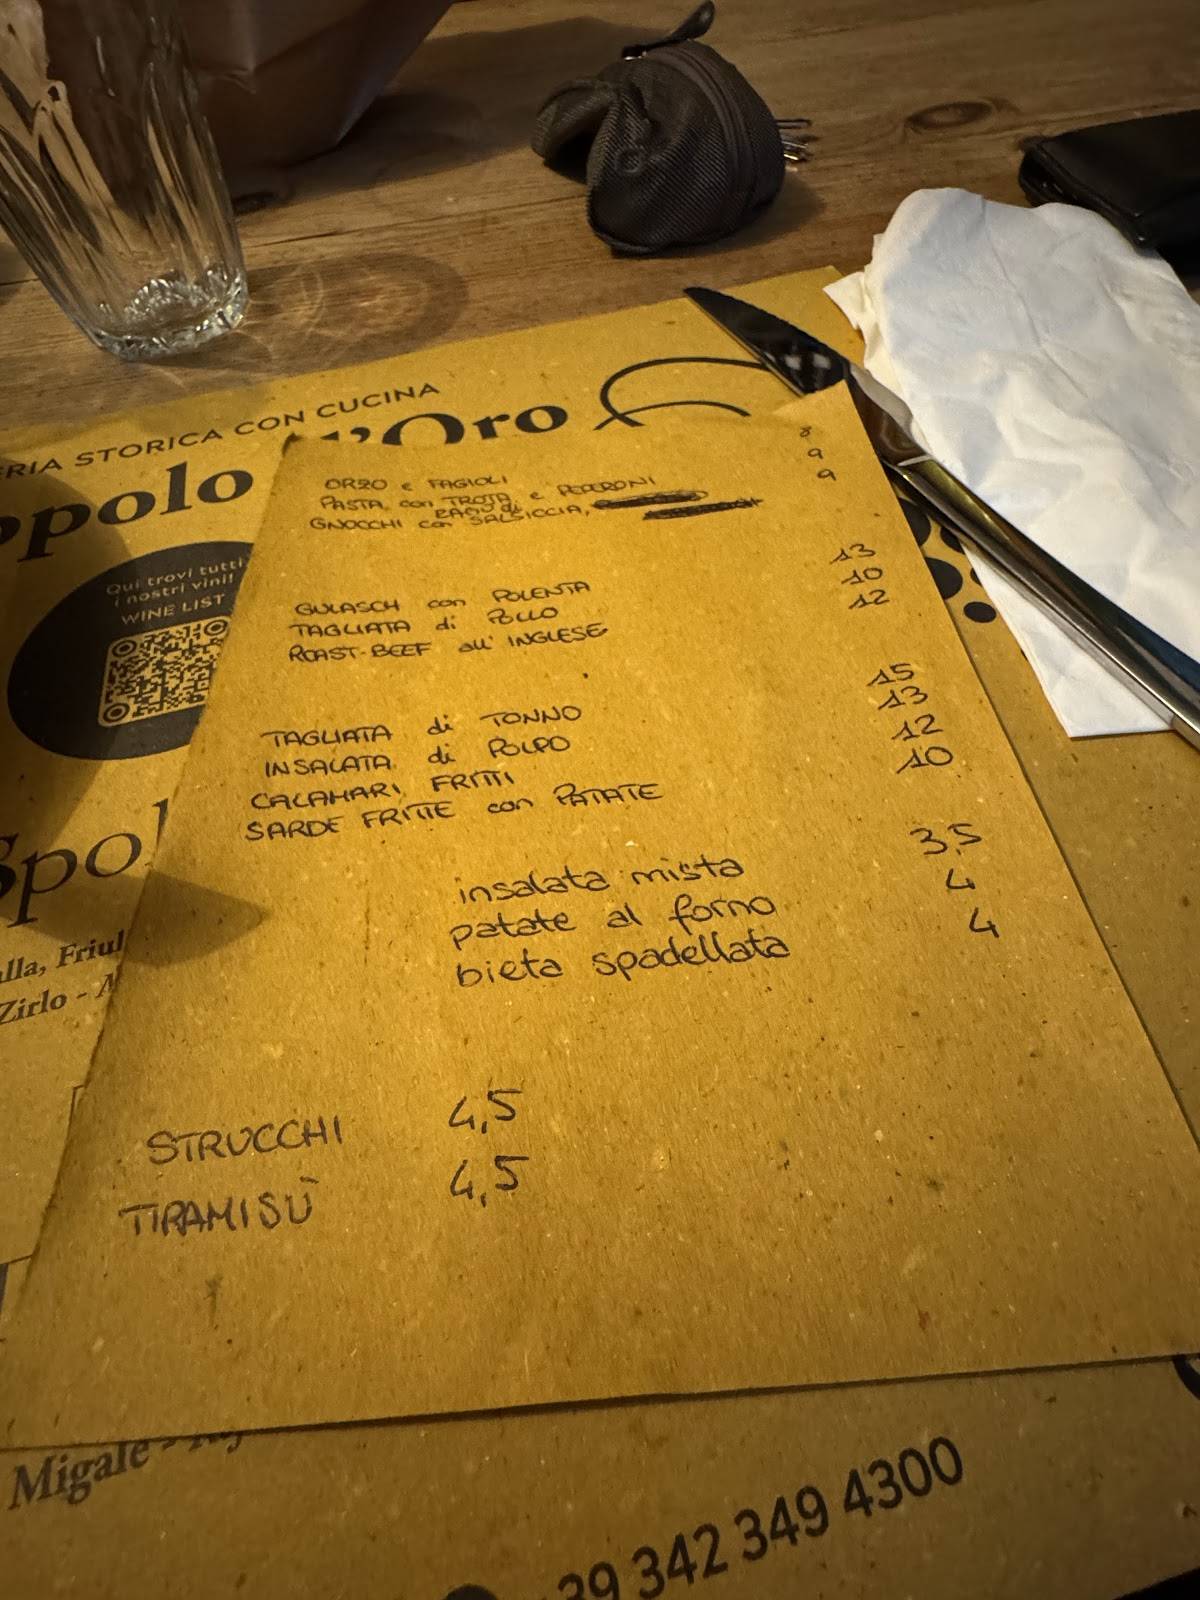 ERIA STORICA CON CUCINA
ppolo d'Oro
Qui trovi tutti
i nostri vini!
WINE LIST
ORZO e FAGIOLI 8
PASTA con TROTA e PEPERONI 9
GNOCCHI con RAGÙ di SALSICCIA, 9
GULASCH con POLENTA 13
TAGLIATA di POLLO 10
ROAST-BEEF all'INGLESE 12
TAGLIATA di TONNO 15
INSALATA di POLPO 13
CALAMARI FRITTI 12
SARDE FRITTE con PATATE 10
insalata mista 3,5
patate al forno 4
bieta spadellata 4
STRUCCHI 4,5
TIRAMISÙ 4,5
Spol
alla, Friul
Zirlo - A
Migale -
39 342 349 4300